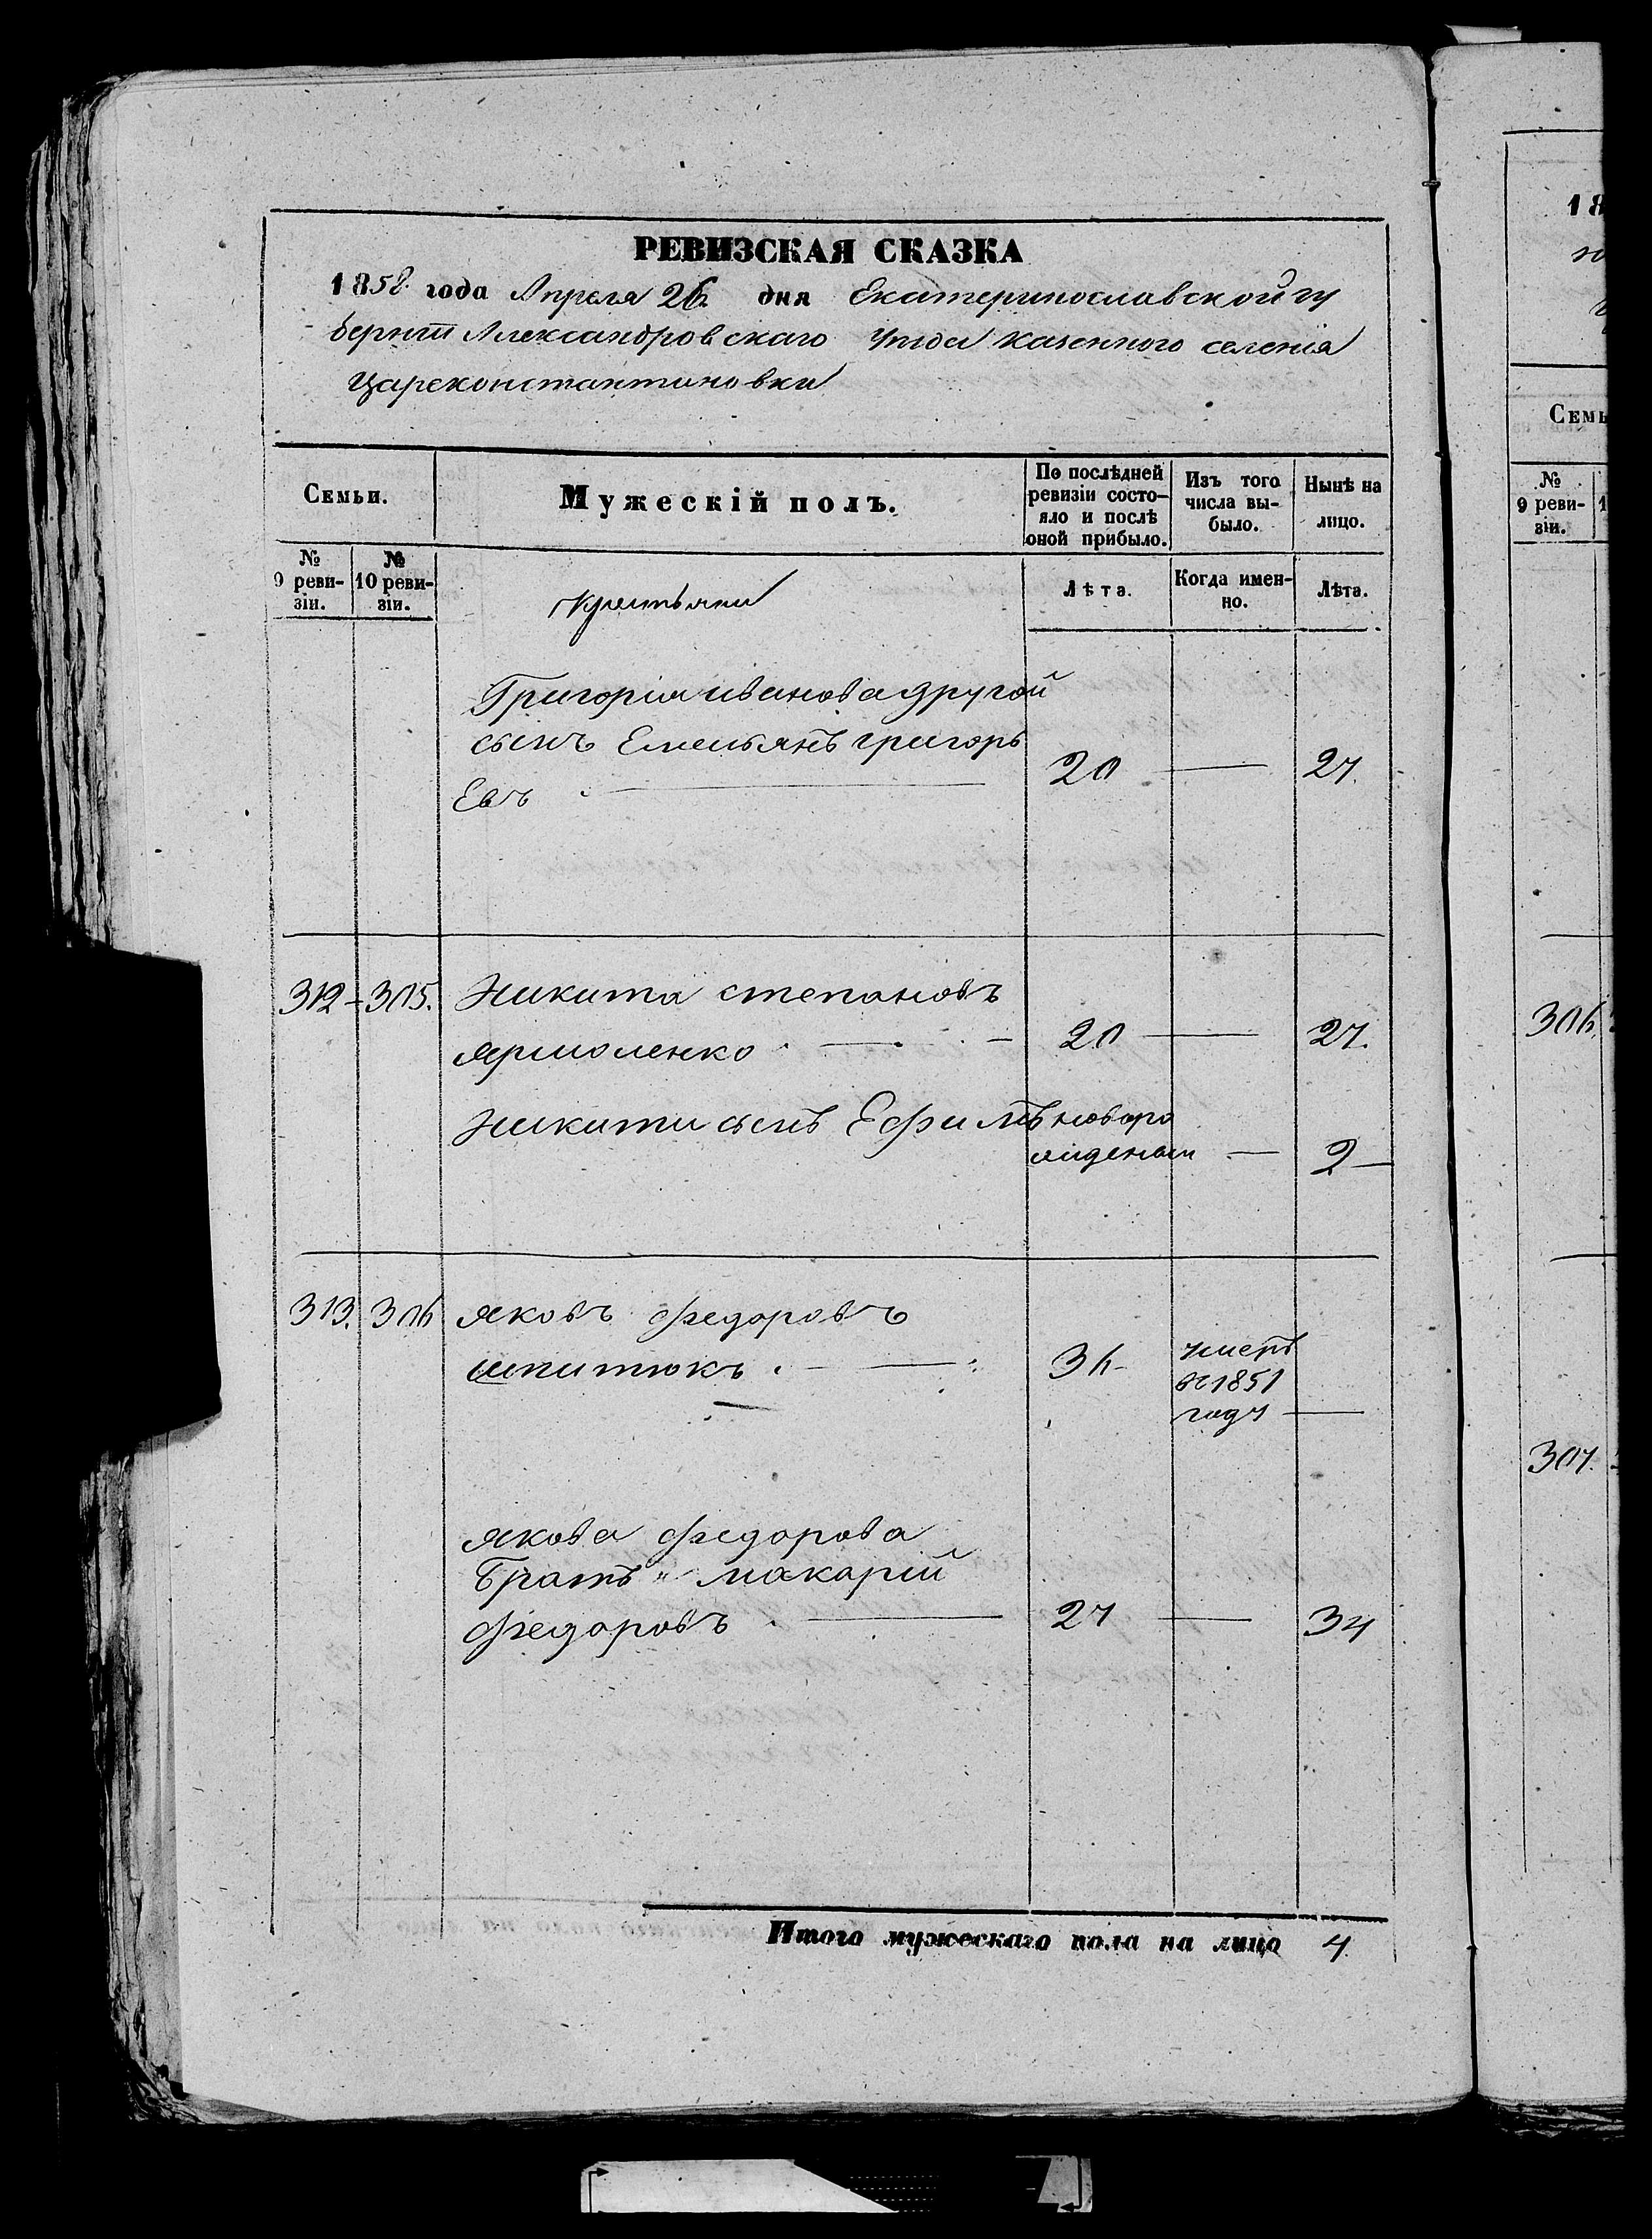 РЕВИЗСКАЯ СКАЗКА
1858 года Апреля 26 дня Екатеринославской гу
берніи Александровскаго Уѣзда казенного селенія
Цареконстантиновки
Семьи.
Мужескій полъ.
По послѣдней ревизіи состо-
яло и послѣ
оной прибыло.
Изъ того
числа вы-
было.
Нынѣ на
лицо.
№
9 реви-
зіи.
№
10 реви-
зіи.
крестьяни
Лѣта.
Когда имен-
но.
Лѣта.
Григорія иванова другой
сынъ Емельянъ григорь
Евъ 20 — 27.
312 - 305. Никита степановъ
ярмоленко 20 — 27.
Никити сынъ Ефимъ новоро
жденый — 2
313. 306 яковъ федоровъ
шпитюкъ 36 умеръ
въ 1851
году —
якова федорова
Братъ макарій
федоровъ 27 — 34
Итого мужескаго пола на лицо 4.
18
Семь
№
9 реви-
зіи.
306.
307.